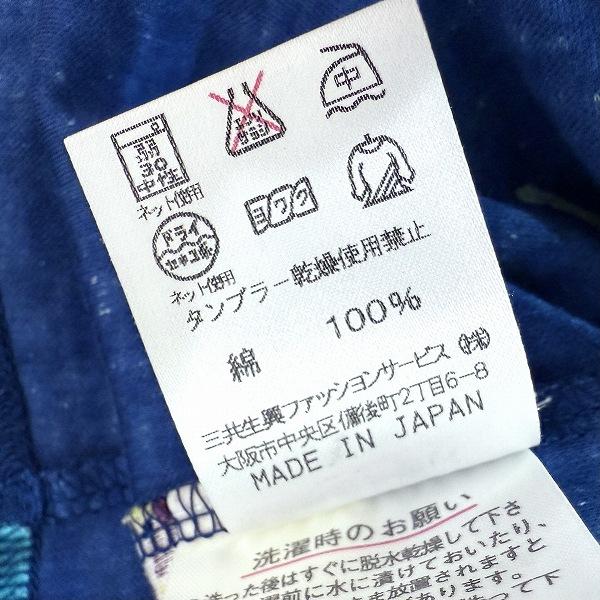 弱
30
中性
ネット使用
エンソ
サラシ
中
ドライ
セキユ系
ネット使用
ヨワク
タンブラー乾燥使用禁止
綿 100%
三共生興ファッションサービス（株）
大阪市中央区備後町2丁目6-8
MADE IN JAPAN
洗濯時のお願い
洗った後はすぐに脱水乾燥して下さ
前に水に漬けておいたり、
まま放置されますと
あります。
って下